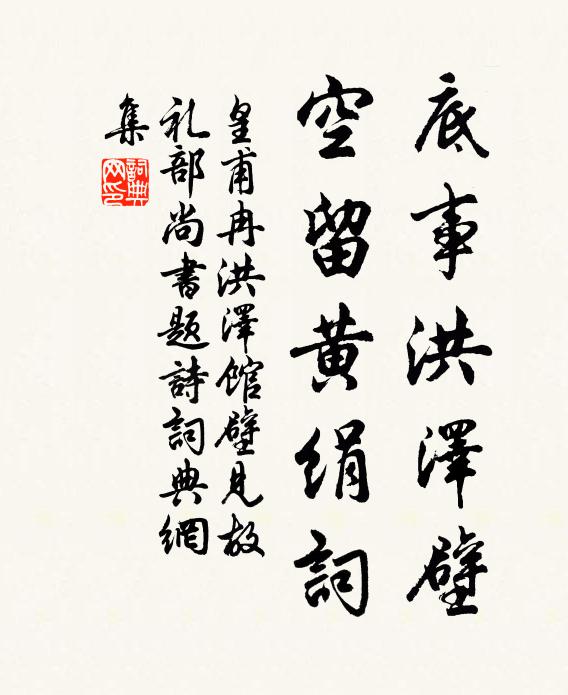 底事洪澤壁
空留黄絹詞
皇甫冉洪澤館壁見故
礼部尚書題詩詞典網
集
詞典
网印